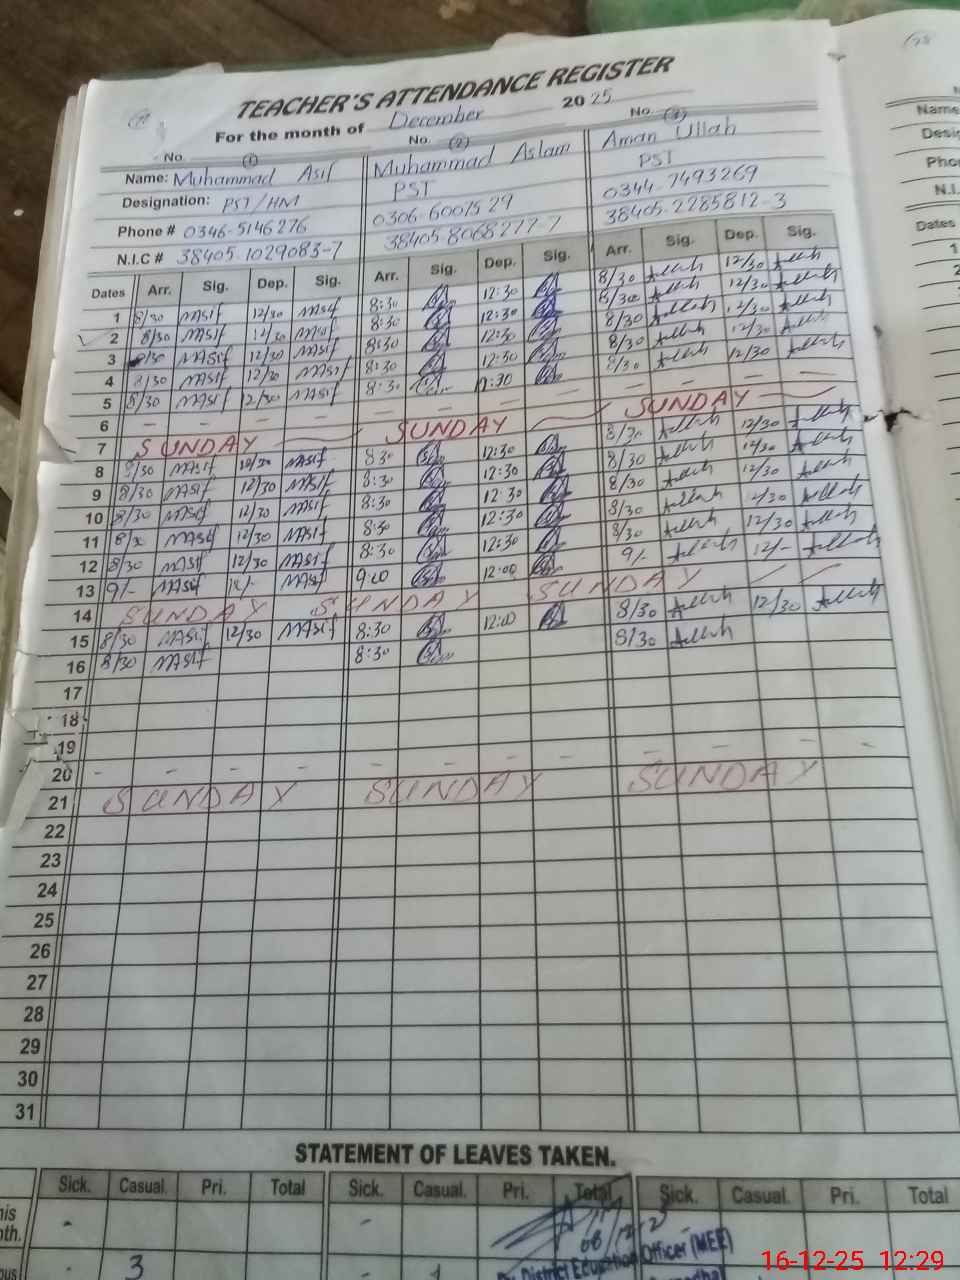 TEACHER'S ATTENDANCE REGISTER
For the month of December 2025
No. (1) No. (2) No. (3)
Name: Muhammad Asif Muhammad Aslam Aman Ullah
Designation: PST/HM PST PST
Phone # 0346-5146276 0306-6001529 0344-7493269
N.I.C # 38405-1029083-7 38405-8068277-7 38405-2285812-3
Dates Arr. Sig. Dep. Sig. Arr. Sig. Dep. Sig. Arr. Sig. Dep. Sig.
1 8/30 MAsif 12/30 MAsif 8:30 12:30 8/30 12/30
2 8/30 MAsif 12/30 MAsif 8:30 12:30 8/30 12/30
3 8/30 MAsif 12/30 MAsif 8:30 12:30 8/30 12/30
4 8/30 MAsif 12/30 MAsif 8:30 12:30 8/30 12/30
5 8/30 MAsif 12/30 MAsif 8:30 12:30 8/30 12/30
6 - - - - - - - - - - - -
7 SUNDAY SUNDAY SUNDAY
8 8/30 MAsif 12/30 MAsif 8:30 12:30 8/30 12/30
9 8/30 MAsif 12/30 MAsif 8:30 12:30 8/30 12/30
10 8/30 MAsif 12/30 MAsif 8:30 12:30 8/30 12/30
11 8/30 MAsif 12/30 MAsif 8:30 12:30 8/30 12/30
12 8/30 MAsif 12/30 MAsif 8:30 12:30 8/30 12/30
13 9/- MAsif 12/- MAsif 9:00 12:00 9/- 12/-
14 SUNDAY SUNDAY SUNDAY
15 8/30 MAsif 12/30 MAsif 8:30 12:00 8/30 12/30
16 8/30 MAsif 8:30 8/30
17
18
19
20 - - - - - - - - - - - -
21 SUNDAY SUNDAY SUNDAY
22
23
24
25
26
27
28
29
30
31
STATEMENT OF LEAVES TAKEN.
Sick. Casual. Pri. Total Sick. Casual. Pri. Total Sick. Casual. Pri. Total
- -
3
District Education Officer (MEE)
16-12-25 12:29
Name
Phon
N.I.
Dates
1